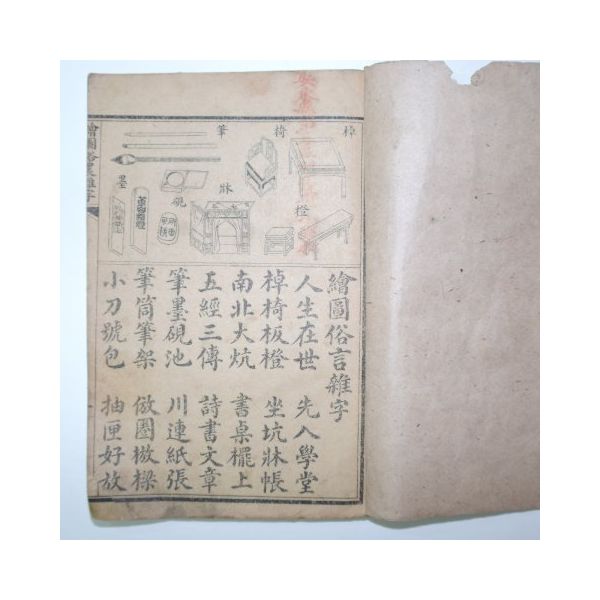 棹
椅
筆
橙
牀
硯
墨
繪圖俗言雜字
人生在世 先入學堂
棹椅板橙 坐坑牀帳
南北大炕 書桌擺上
五經三傳 詩書文章
筆墨硯池 川連紙張
筆筒筆架 倣圈
小刀號包 抽匣好放